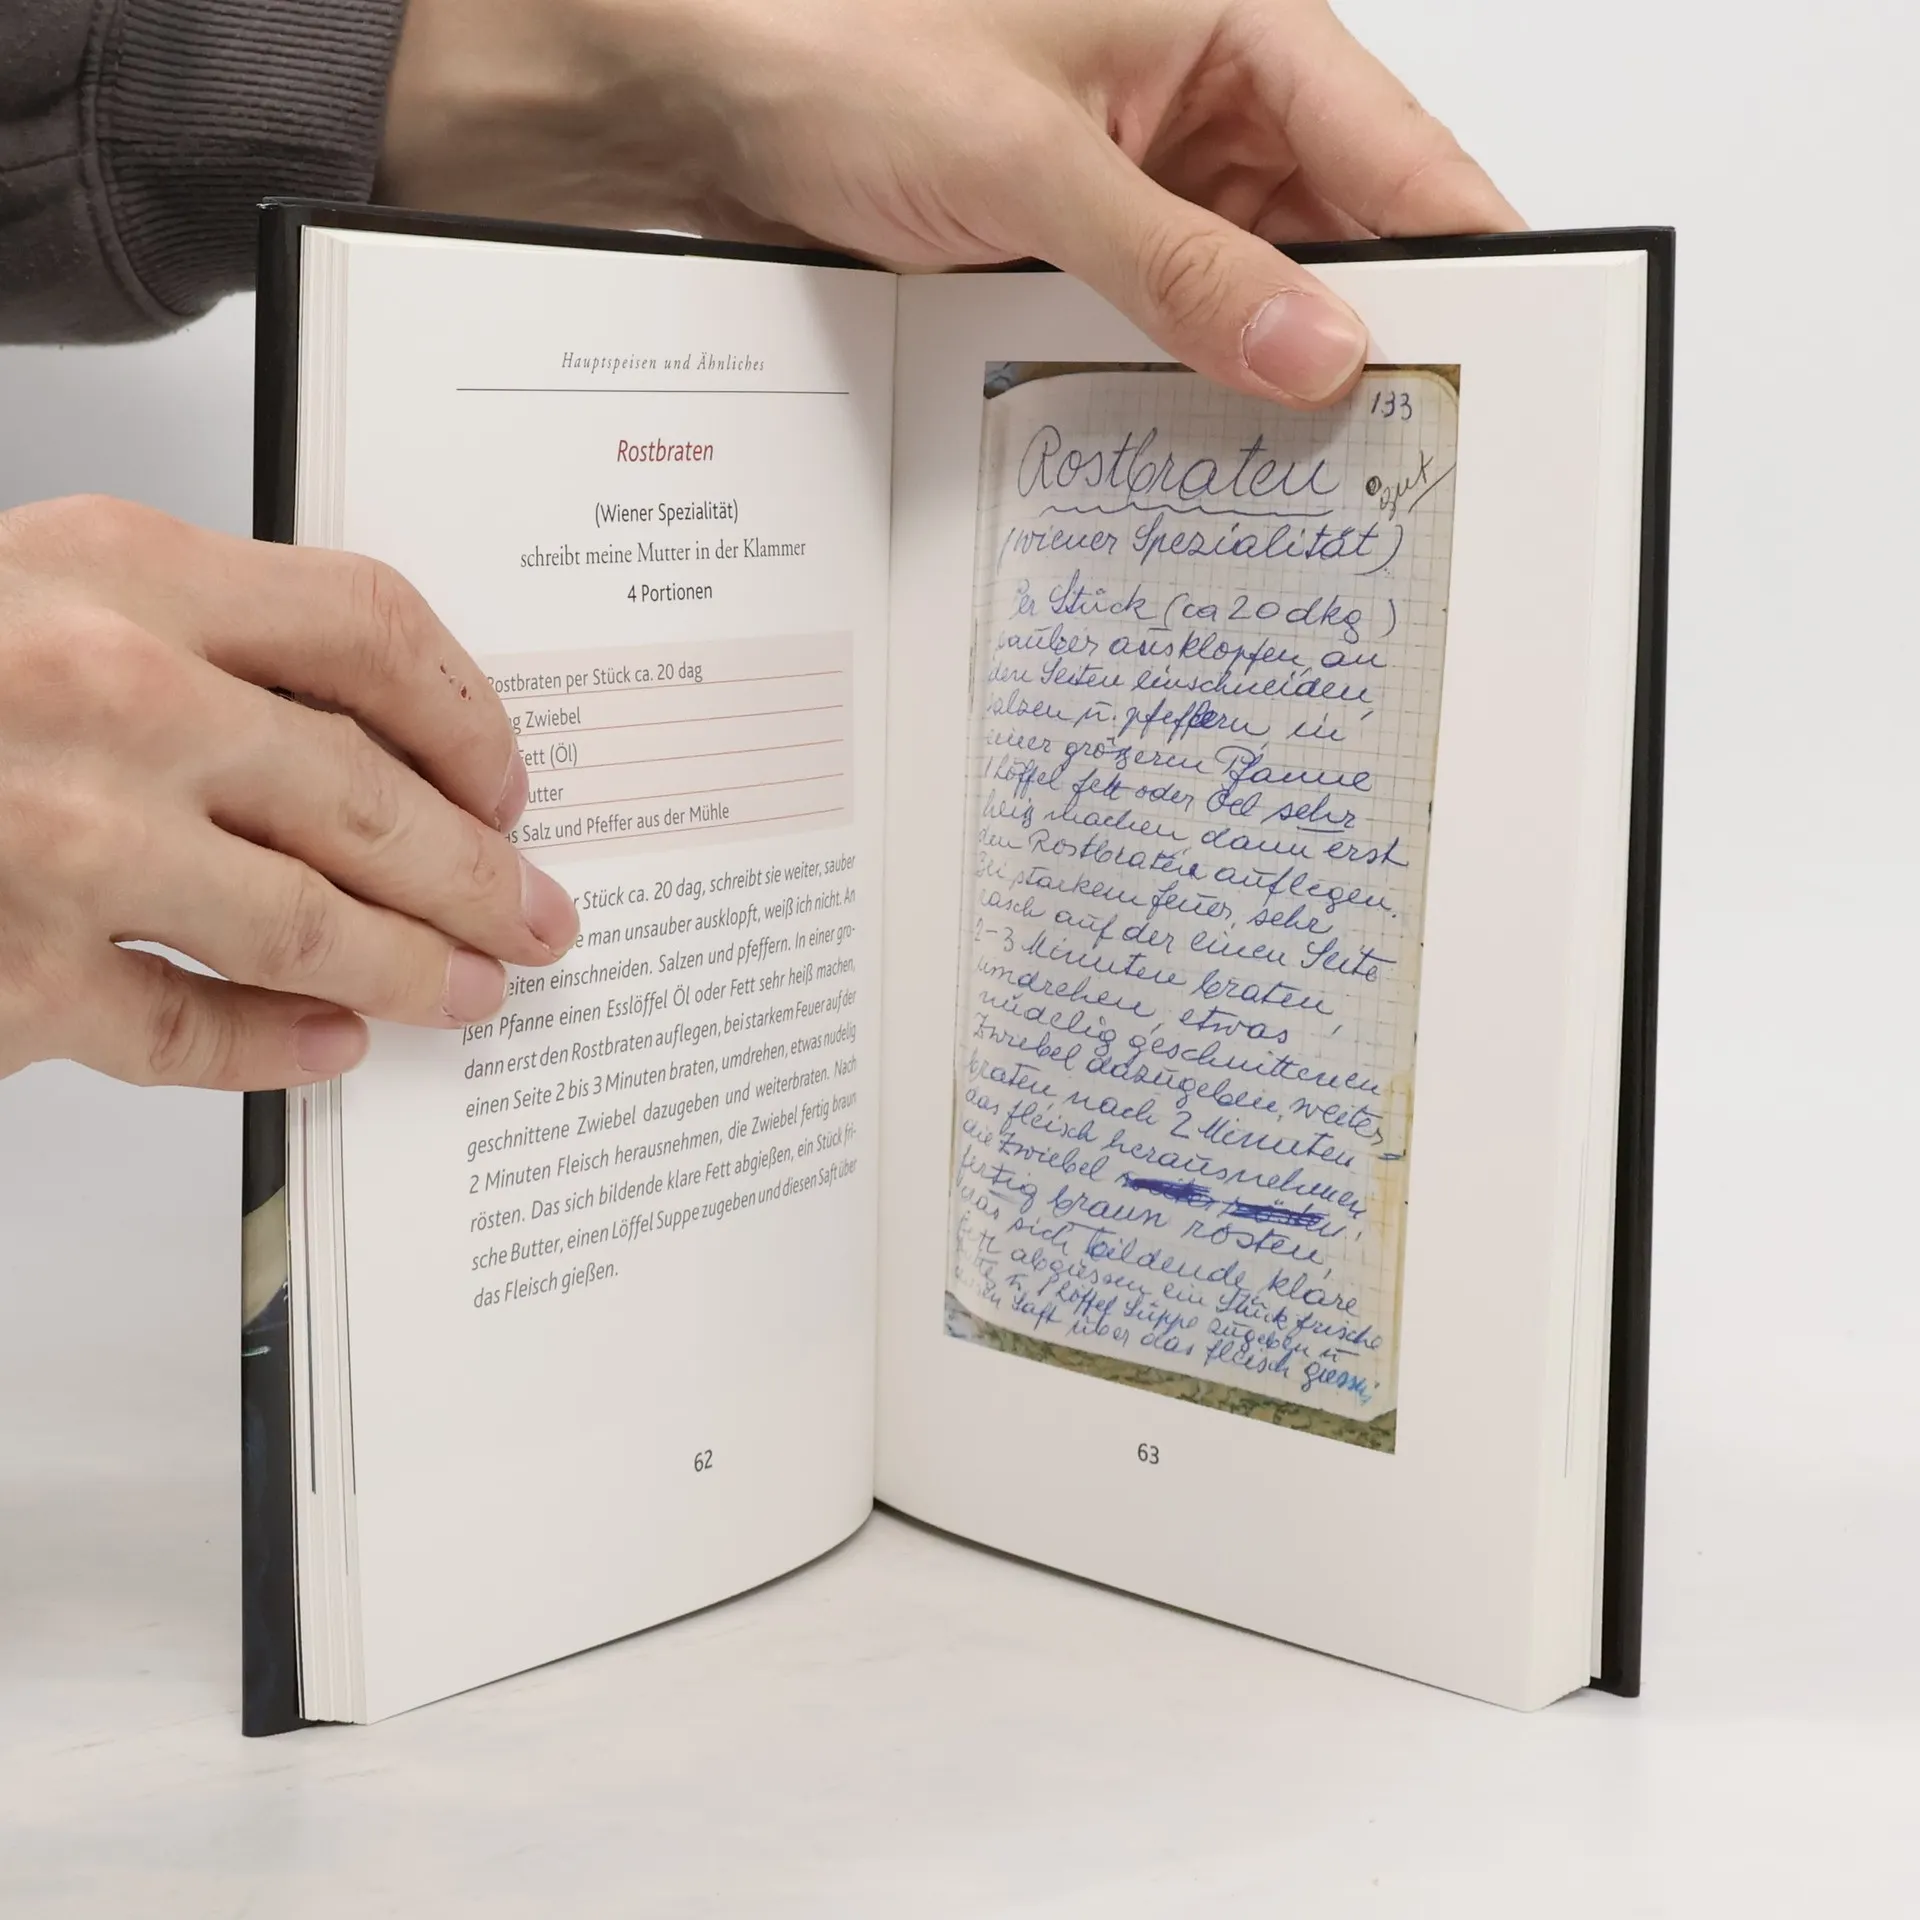 Hauptspeisen und Ähnliches
Rostbraten
(Wiener Spezialität)
schreibt meine Mutter in der Klammer
4 Portionen
Rostbraten per Stück ca. 20 dag
Zwiebel
Fett (Öl)
Salz und Pfeffer aus der Mühle
Stück ca. 20 dag, schreibt sie weiter, sauber
man unsauber ausklopft, weiß ich nicht. An
einschneiden. Salzen und pfeffern. In einer gro-
ßen Pfanne einen Esslöffel Öl oder Fett sehr heiß machen,
dann erst den Rostbraten auflegen, bei starkem Feuer auf der
einen Seite 2 bis 3 Minuten braten, umdrehen, etwas nudelig
geschnittene Zwiebel dazugeben und weiterbraten. Nach
2 Minuten Fleisch herausnehmen, die Zwiebel fertig braun
rösten. Das sich bildende klare Fett abgießen, ein Stück fri-
sche Butter, einen Löffel Suppe zugeben und diesen Saft über
das Fleisch gießen.
62
133
Rostbraten
gut
(wiener Spezialität)
Per Stück (ca 20 dkg)
sauber ausklopfen, an
den Seiten einschneiden,
salzen u. pfeffern, in
einer größeren Pfanne
1 Löffel fett oder Oel sehr
heiß machen, dann erst
den Rostbraten auflegen.
Bei starkem feuer, sehr
rasch auf der einen Seite
2-3 Minuten braten,
umdrehen, etwas
nudelig geschnittenen
Zwiebel dazugeben, weiter
braten, nach 2 Minuten
das fleisch herausnehmen
die Zwiebel
fertig braun rösten,
das sich bildende klare
fett abgiessen ein Stück frische
u 1 Löffel Suppe zugeben u
Saft über das fleisch
63